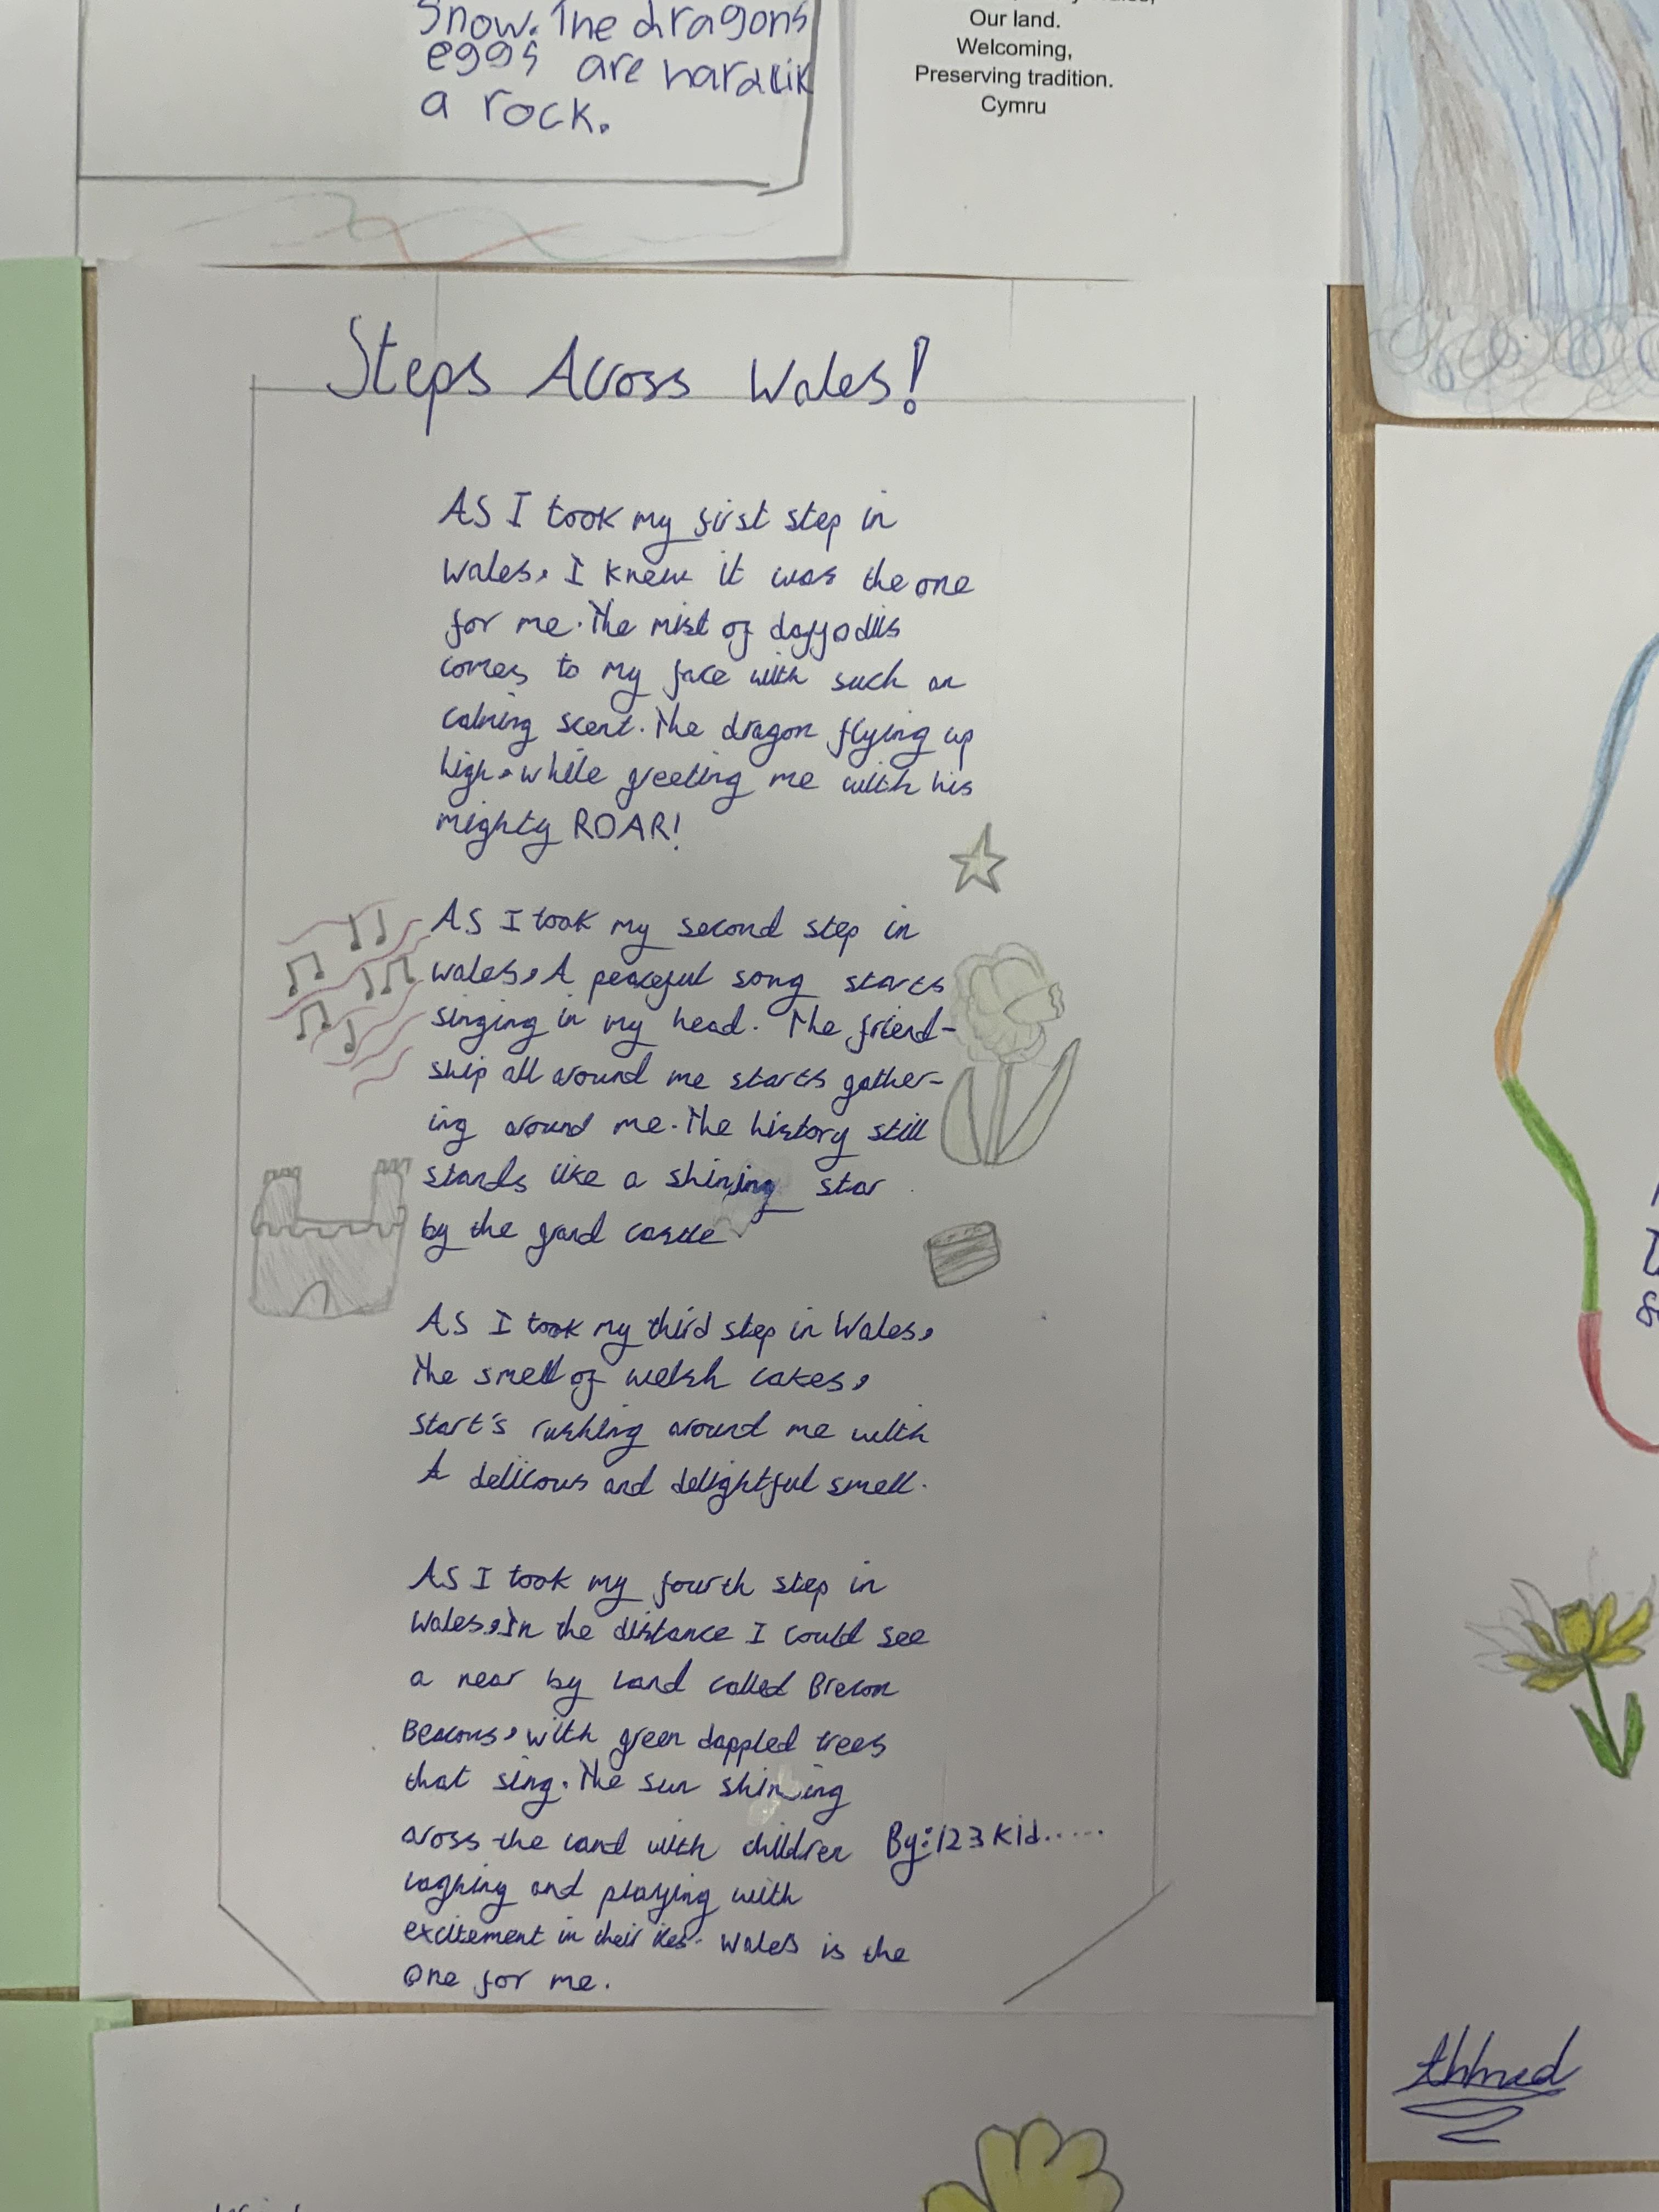 Snow. The dragons
eggs are hard lik
a rock.
Our land.
Welcoming,
Preserving tradition.
Cymru
Steps Across Wales!
AS I took my first step in
Wales, I knew it was the one
for me. The mist of daffodils
comes to my face with such an
calming scent. The dragon flying up
high, while greeting me with his
mighty ROAR!
AS I took my second step in
Wales, A peaceful song starts
singing in my head. The friend-
ship all around me starts gather-
ing around me. The history still
stands like a shining star
by the grand castle
AS I took my third step in Wales,
The smell of welsh cakes,
start's rushing around me with
A delicous and delightful smell.
AS I took my fourth step in
Wales, In the distance I could see
a near by land called Brecon
Beacons, with green dappled trees
that sing. The sun shining
across the land with children
laghing and playing with
excitement in their ies. Wales is the
One for me.
By: 123 Kid......
Ahhmed